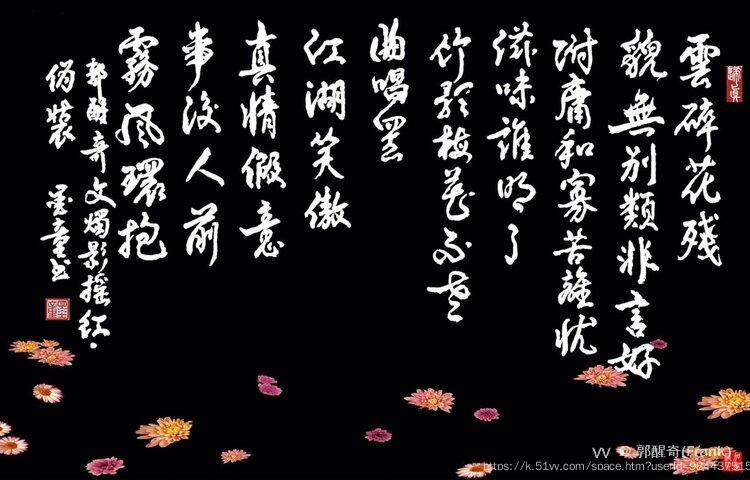 雲碎花殘
貌無別類非言好
附庸和寡苦離忧
滋味誰明了
竹影梅花老
曲唱罢
江湖笑傲
真情假意
事後人前
霧風環抱
郭醒奇文燭影摇红
伪裝 童书
VV @ 郭醒奇(Frank)
https://k.51vv.com/space.htm?userid=984437515